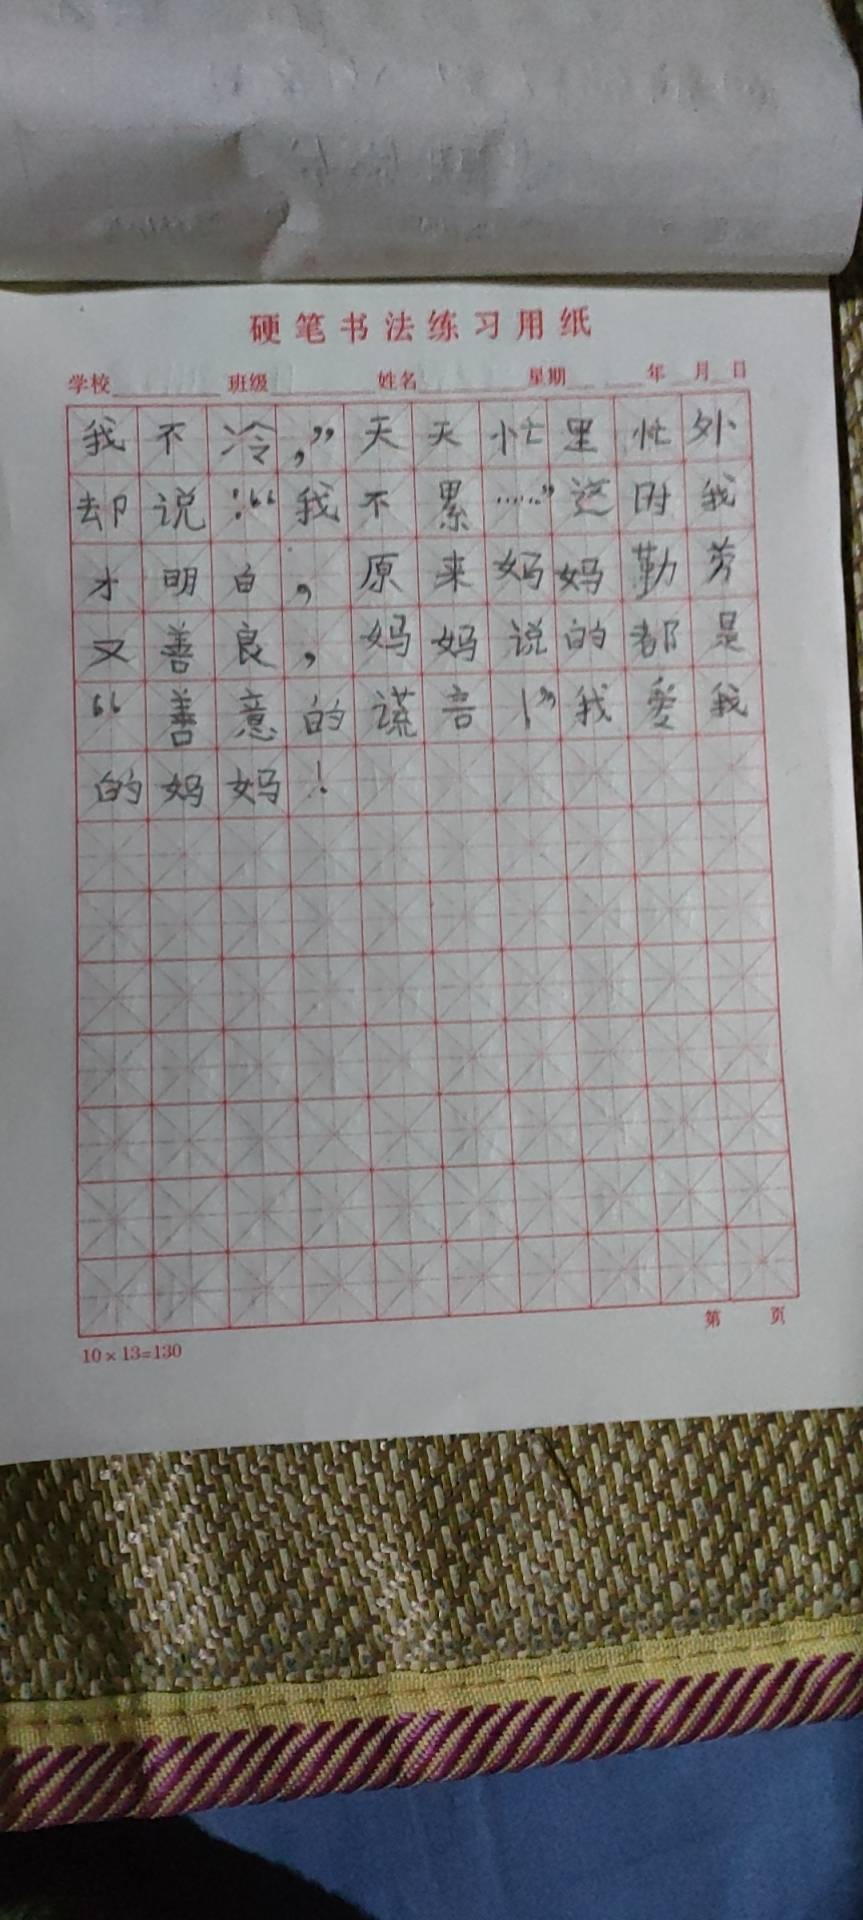 硬笔书法练习用纸
学校 班级 姓名 星期 年 月 日
我不冷，”天天忙里忙外
却说：“我不累……”这时我
才明白，原来妈妈勤劳
又善良，妈妈说的都是
“善意的谎言！”我爱我
的妈妈！
第 页
10×13=130